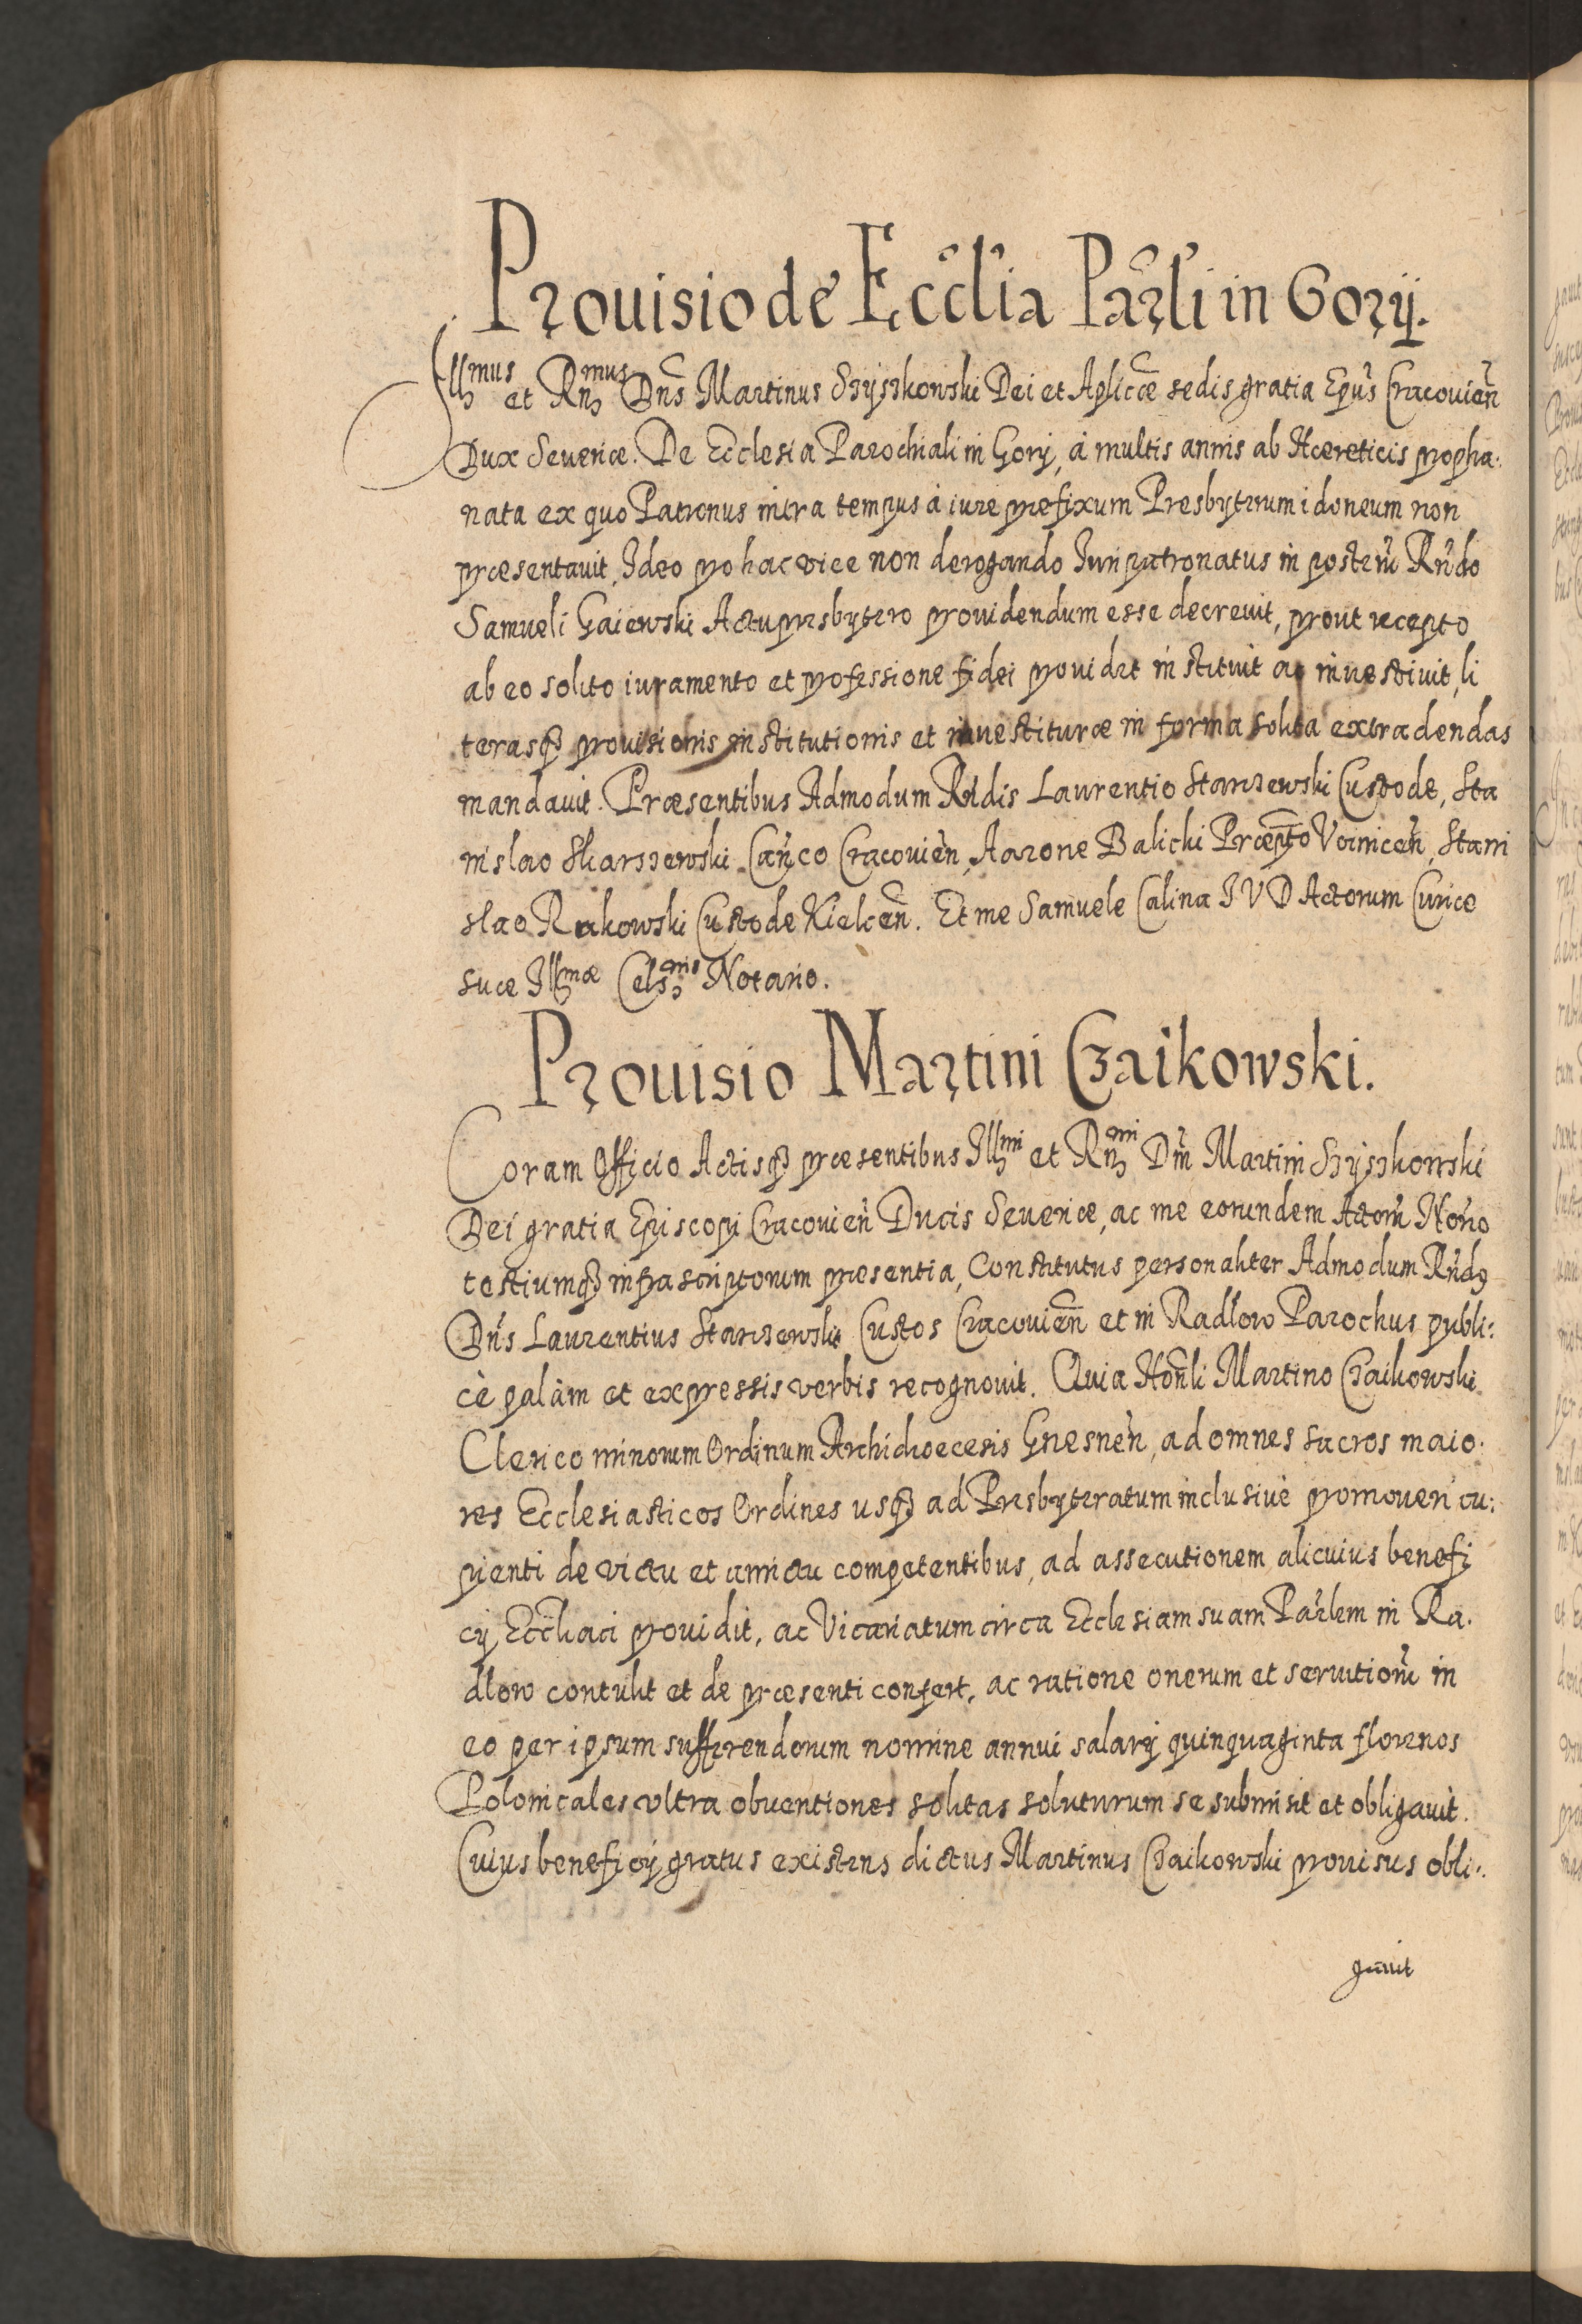 Prouisio de Eccl̃ia Parl̃i in Gorÿ.
Illmus et Rn̄mus Dn̄s Martinus Szÿszkowski Dei et Apl̃icæ sedis gratia Ep̃us Cracouien̄
Dux Seueriæ. De Ecclesia Parochiali in Gorÿ, à multis annis ab Hæreticis propha:
nata ex quo Patronus intra tempus à iure prefixum Presbyterum idoneum non
præsentauit, Ideo pro hac vice non derogando Iuripatronatus in posterũ Rñdo
Samueli Gaiewski Actupresbytero prouidendum esse decreuit, prout recepto
ab eo solito iuramento et professione fidei prouidet instituit ac inuestiuit, li
terasq3 prouisionis institutionis et inuestituræ in forma solita extradendas
mandauit. Præsentibus Admodum Rñdis Laurentio Starszewski Custode, Sta
nislao Skarszewski Can̄co Cracouien̄, Aarone Balicki Præp̄to Voinicen̄, Stani
slao Rakowski Custode Kielcen̄. Et me Samuele Calina I V D Actorum Curiæ
suæ Illmæ Cels:nis Notario.
Prouisio Martini Czaikowski.
Coram Officio Actisq3 præsentibus Illmi et Rn̄mi Dn̄i Martini Szÿszkowski
Dei gratia Episcopi Cracouien̄ Ducis Seueriæ, ac me eorundem Actorũ Nõrio
testiumq3 infrascriptorum presentia, Constitutus personaliter Admodum Rñd9
Dn̄s Laurentius Starszewski Custos Cracouien̄ et in Radlow Parochus publi:
cè palàm et expressis verbis recognouit. Quia Hon̄li Martino Czaikowski
Clerico minorum Ordinum Archidioecesis Gnesnen̄, ad omnes sacros maio:
res Ecclesiasticos Ordines usq3 ad Presbyteratum inclusiuè promoueri cu:
pienti de victu et amictu competentibus, ad assecutionem alicuius benefi
cÿ Eccl̃iaci prouidit, ac Vicariatum circa Ecclesiam suam Parlem in Ra:
dlow contulit et de præsenti confert, ac ratione onerum et seruitiorũ in
eo per ipsum sufferendorum nomine annui salarÿ quinquaginta florenos
Polonicales ultra obuentiones solitas soluturum se submisit et obligauit.
Cuius beneficÿ gratus existens dictus Martinus Czaikowski prouisus obli:
gauit